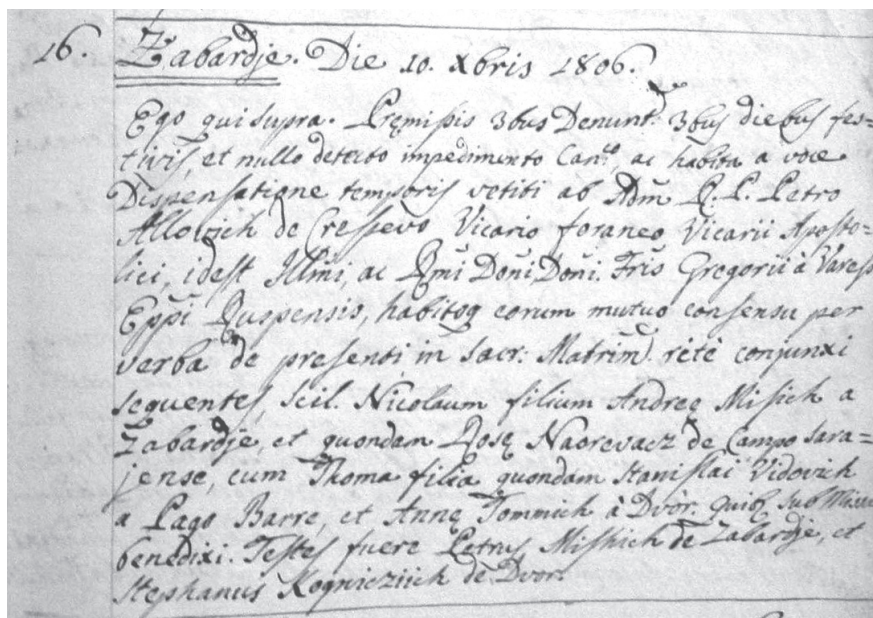 16. Zabardje. Die 10. Xbris 1806.
Ego qui supra. Premissis 3bus Denunt. 3bus diebus fes=
tivis, et nullo detecto impedimento Canº, ac habita a voce
Dispensatione temporis vetiti ab Adm R. P. Petro
Allovich de Cressevo Vicario foraneo Vicarii Aposto=
lici, idest Illmi, ac Rmi Doni Doni. Fris Gregorii à Vares
Eppi Ruspensis, habitoq eorum mutuo consensu per
verba de presenti, in sacr: Matrim. ritè conjunxi
sequentes, scil. Nicolaum filium Andreę Misich a
Zabardje, et quondam Rosę Naorevacz de Campo Sara=
jense, cum Thoma filia quondam Stanislai Vidovich
a Pago Barre, et Annę Tommich à Dvor. quibq sub Missa
benedixi. Testes fuere Petrus Missich de Zabardje, et
Stephanus Kognicziich de Dvor.